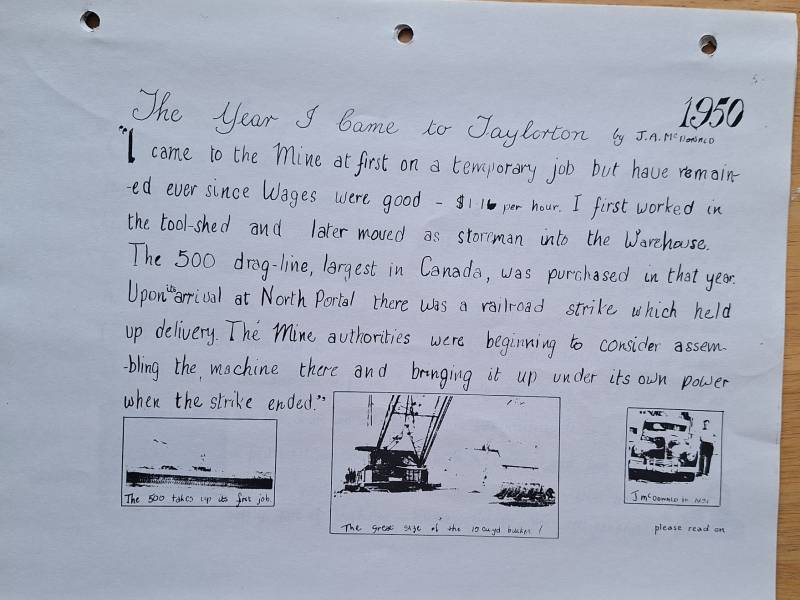 1950
The Year I Came to Taylorton by J.A. McDONALD
"I came to the Mine at first on a temporary job but have remain-
-ed ever since Wages were good - $1.16 per hour. I first worked in
the tool-shed and later moved as storeman into the Warehouse.
The 500 drag-line, largest in Canada, was purchased in that year.
Upon its arrival at North Portal there was a railroad strike which held
up delivery. The Mine authorities were beginning to consider assem-
-bling the machine there and bringing it up under its own power
when the strike ended."
The 500 takes up its first job
The great size of the 10 cu yd bucket!
J McDONALD in 1951
please read on